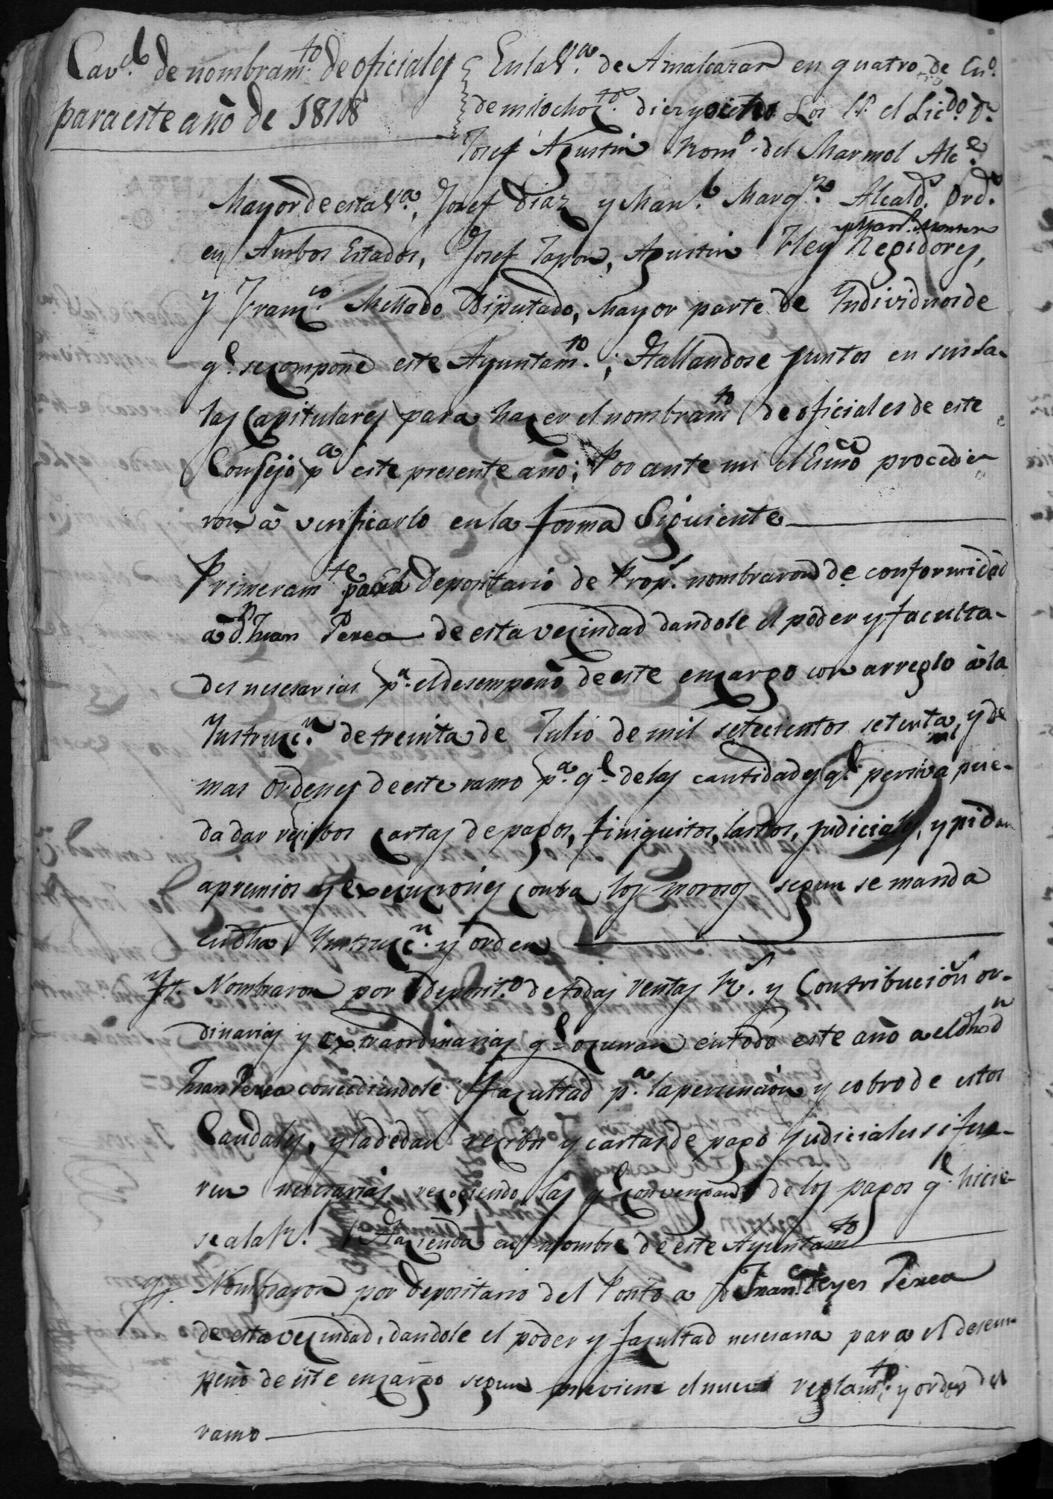 Cav.do de nombram.to de oficiales
para este año de 1818
En la V.a de Aznalcazar en quatro de En.o
de mil ochoz.tos diez y ocho Los SS. el Lic.do D.n
Josef Agustin Rom.o del Marmol Alc.e
Mayor de esta V.a, Josef Diaz y Man.l Marq.z Alcald.s Ord.s
en Ambos Estados, Josef Tapon, Agustin Rey Regidores,
y Fran.co Mellado Diputado, Mayor parte de Individuos de
q.e se compone este Ayuntam.to; Hallandose juntos en sus sa-
las Capitulares para hazer el nombram.to de oficiales de este
Consejo p.a este presente año; Por ante mi el Escño procedie-
ron â verificarlo en la forma Siguiente
Primeram.te para Depositario de Prop.s nombraron de conformidad
a D.n Juan Perea de esta vezindad dandole el poder y faculta-
des nesesarias p.a el desempeño de este encargo con arreglo â la
Instruzc.n de treinta de Julio de mil setecientos setenta, y de
mas ordenes de este ramo p.a q.e de las cantidades q.e perciva pue-
da dar recibos cartas de pagos, finiquitos, lastos, judiciales, y pida
apremios y execuciones contra los morosos segun se manda
en dha Instruzc.n y orden
Yt. Nombraron por deposit.o de todas rentas R.s y Contribucion.s or-
dinarias y extraordinarias q.e ocurran en todo este año a el dho D.n
Juan Perea concediendole facultad p.a la percepcion y cobro de estos
Caudales, y la de dar recibos y cartas de pago judiciales si fue-
ren nesesarias recogiendo las q.e convengan de los pagos q.e hicie-
se a la R.l Hazienda en nombre de este Ayuntam.to
Yt. Nombraron por Depositario del Posito a D. Fran.co Reyes Perea
de esta vezindad, dandole el poder y facultad nesesaria para el desem-
peño de este encargo segun previene el nuevo reglam.to y orden del
ramo